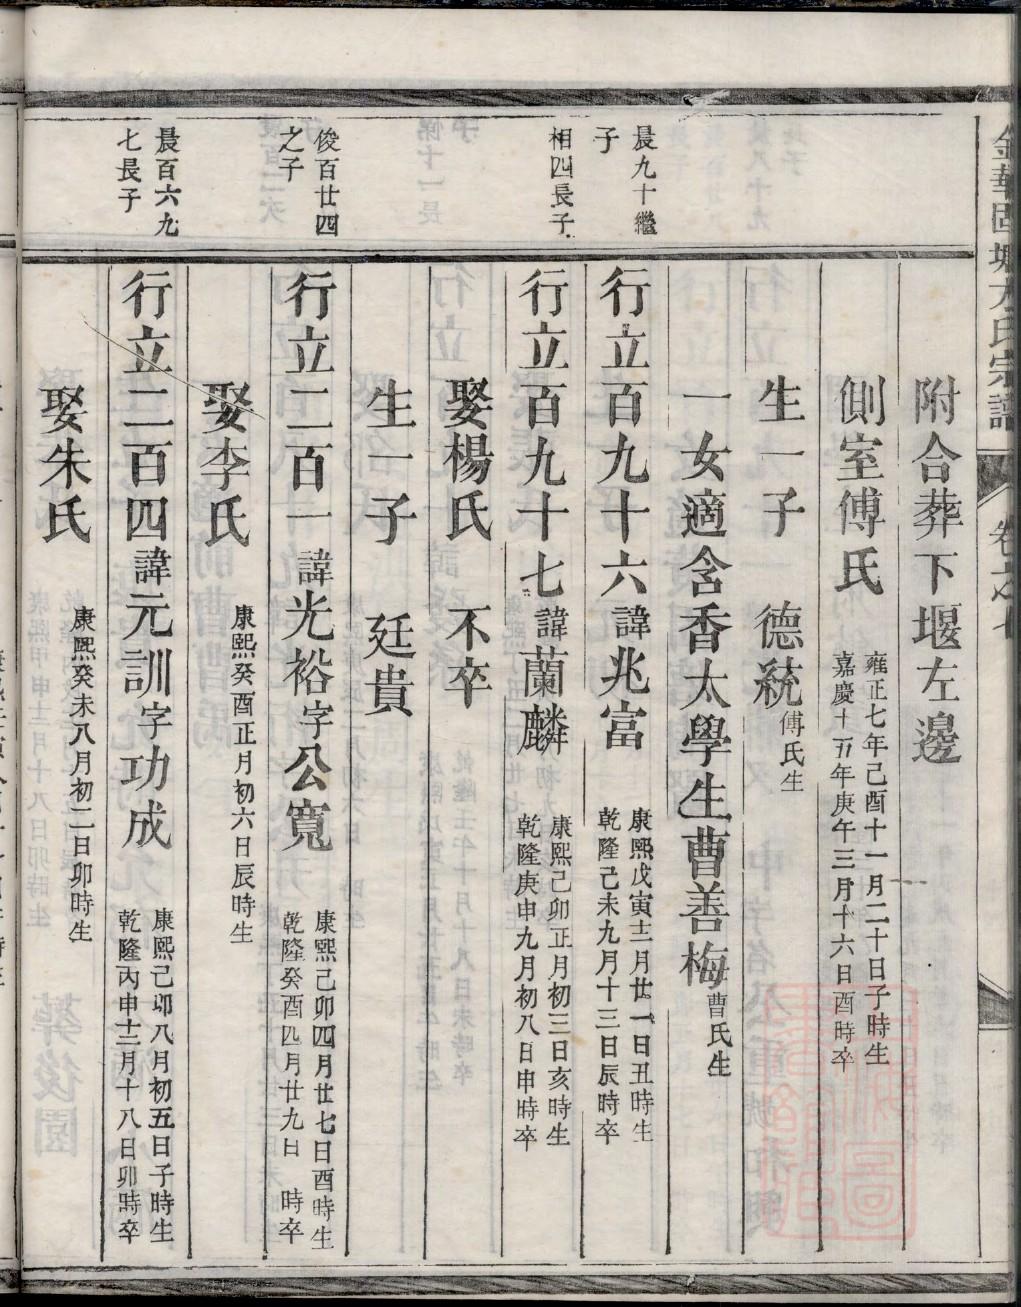 金華固塘方氏宗譜 卷之七
附合葬下堰左邊
側室傅氏 雍正七年己酉十一月二十日子時生
嘉慶十五年庚午三月十六日酉時卒
生一子 德統 傅氏生
一女適含香太學生曹善梅 曹氏生
晨九十繼
子
行立百九十六諱兆富 康熙戊寅十二月廿一日丑時生
乾隆己未九月十三日辰時卒
相四長子
行立百九十七諱蘭麟 康熙己卯正月初三日亥時生
乾隆庚申九月初八日申時卒
娶楊氏 不卒
生一子 廷貴
俊百廿四
之子
行立二百一諱光裕字公寬 康熙己卯四月廿七日酉時生
乾隆癸酉四月廿九日 時卒
娶李氏 康熙癸酉正月初六日辰時生
晨百六九
七長子
行立二百四諱元訓字功成 康熙己卯八月初五日子時生
乾隆丙申十二月十八日卯時卒
娶朱氏 康熙癸未八月初二日卯時生